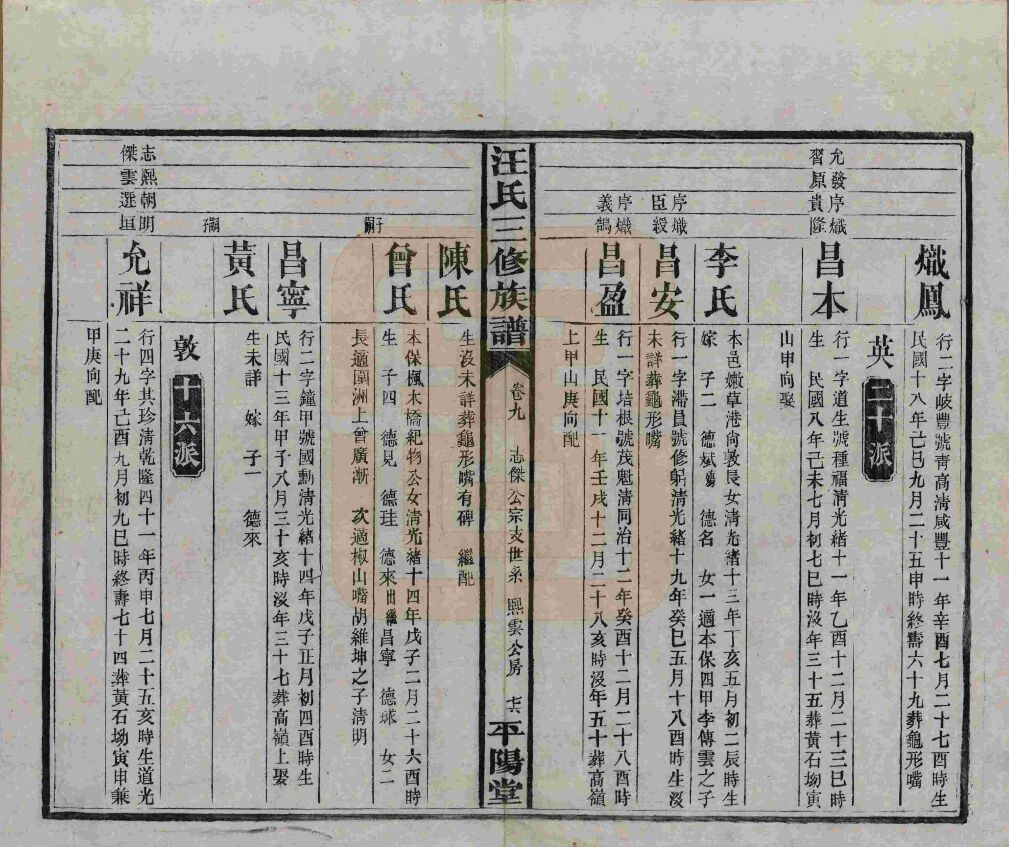 熾鳳
行二字岐豐號靑高清咸豐十一年辛酉七月二十七酉時生
民國十八年己巳九月二十五申時終壽六十九葬龜形嘴
英 二十派
允發序熾
習原貴隆
昌本
行一字道生號種福清光緒十一年乙酉十二月二十三巳時
生 民國八年己未七月初七巳時沒年三十五葬黃石坳寅
山申向娶
李氏
本邑嫩草港尙敦長女清光緒十三年丁亥五月初二辰時生
嫁 子二 德斌 德名 女一適本保四甲李傳雲之子
序熾
臣綬
昌安
行一字滯員號修躬清光緒十九年癸巳五月十八酉時生沒
未詳葬龜形嘴
序熾
義鶴
昌盈
行一字培根號茂魁清同治十二年癸酉十二月二十八酉時
生 民國十一年壬戌十二月二十八亥時沒年五十葬高嶺
上甲山庚向配
汪氏三修族譜
卷九 志傑公宗支世系 熙雲公房
平陽堂
陳氏
生沒未詳葬龜形嘴有碑 繼配
曾氏
本保楓木橋紀物公女清光緒十四年戊子二月二十六酉時
生 子四 德見 德珪 德來出繼昌寧 德球 女二
長適圍洲上曾廣漸 次適椒山嘴胡維坤之子清明
昌寧
行二字鐘甲號國勳清光緒十四年戊子正月初四酉時生
民國十三年甲子八月三十亥時沒年三十七葬高嶺上娶
黃氏
生未詳 嫁 子一 德來
嗣子
敦 十六派
志熙朝明
傑雲選垣
允祥
行四字其珍清乾隆四十一年丙申七月二十五亥時生道光
二十九年己酉九月初九巳時終壽七十四葬黃石坳寅申兼
甲庚向配